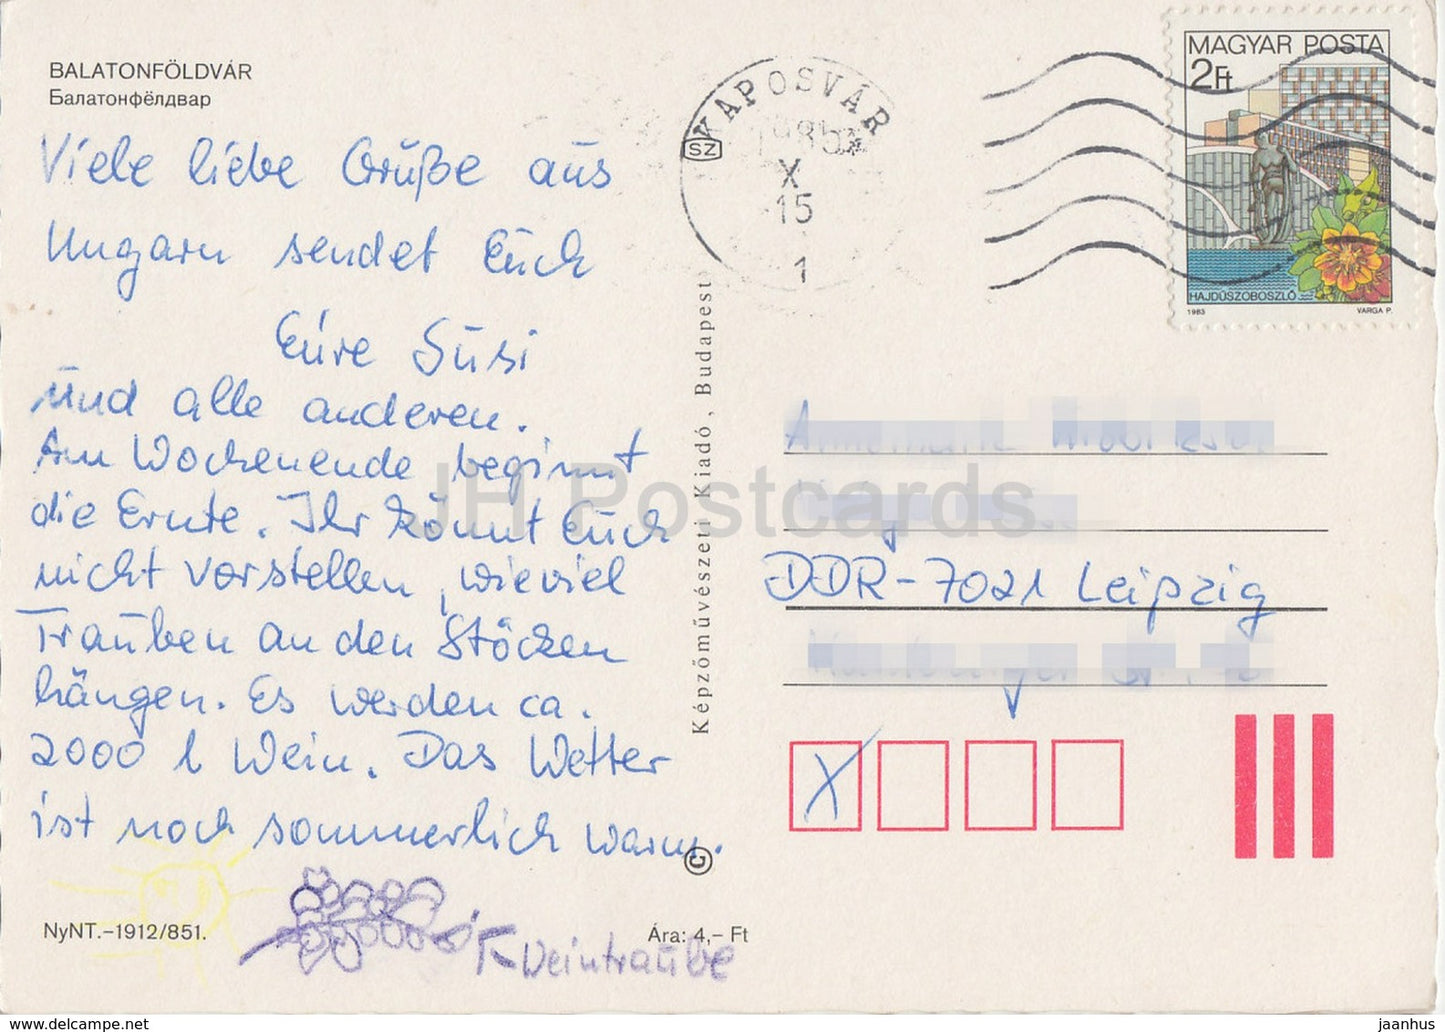 BALATONFÖLDVÁR
Балатонфёлдвар
Viele liebe Grüße aus
Ungarn sendet Euch
Eure Susi
und alle anderen.
Am Wochenende beginnt
die Ernte. Ihr könnt Euch
nicht vorstellen, wieviel
Trauben an den Stöcken
hängen. Es werden ca.
2000 l Wein. Das Wetter
ist noch sommerlich warm.
Weintraube
NyNT.-1912/851.
Ára: 4,- Ft
Képzőművészeti Kiadó, Budapest
KAPOSVÁR
SZ
1985
X
15
1
MAGYAR POSTA
2Ft
HAJDÚSZOBOSZLÓ
1983 VARGA P.
DDR-7021 Leipzig
X
JH Postcards
hu.delcampe.net
jaanhus